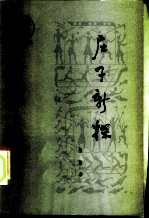 庄子新探